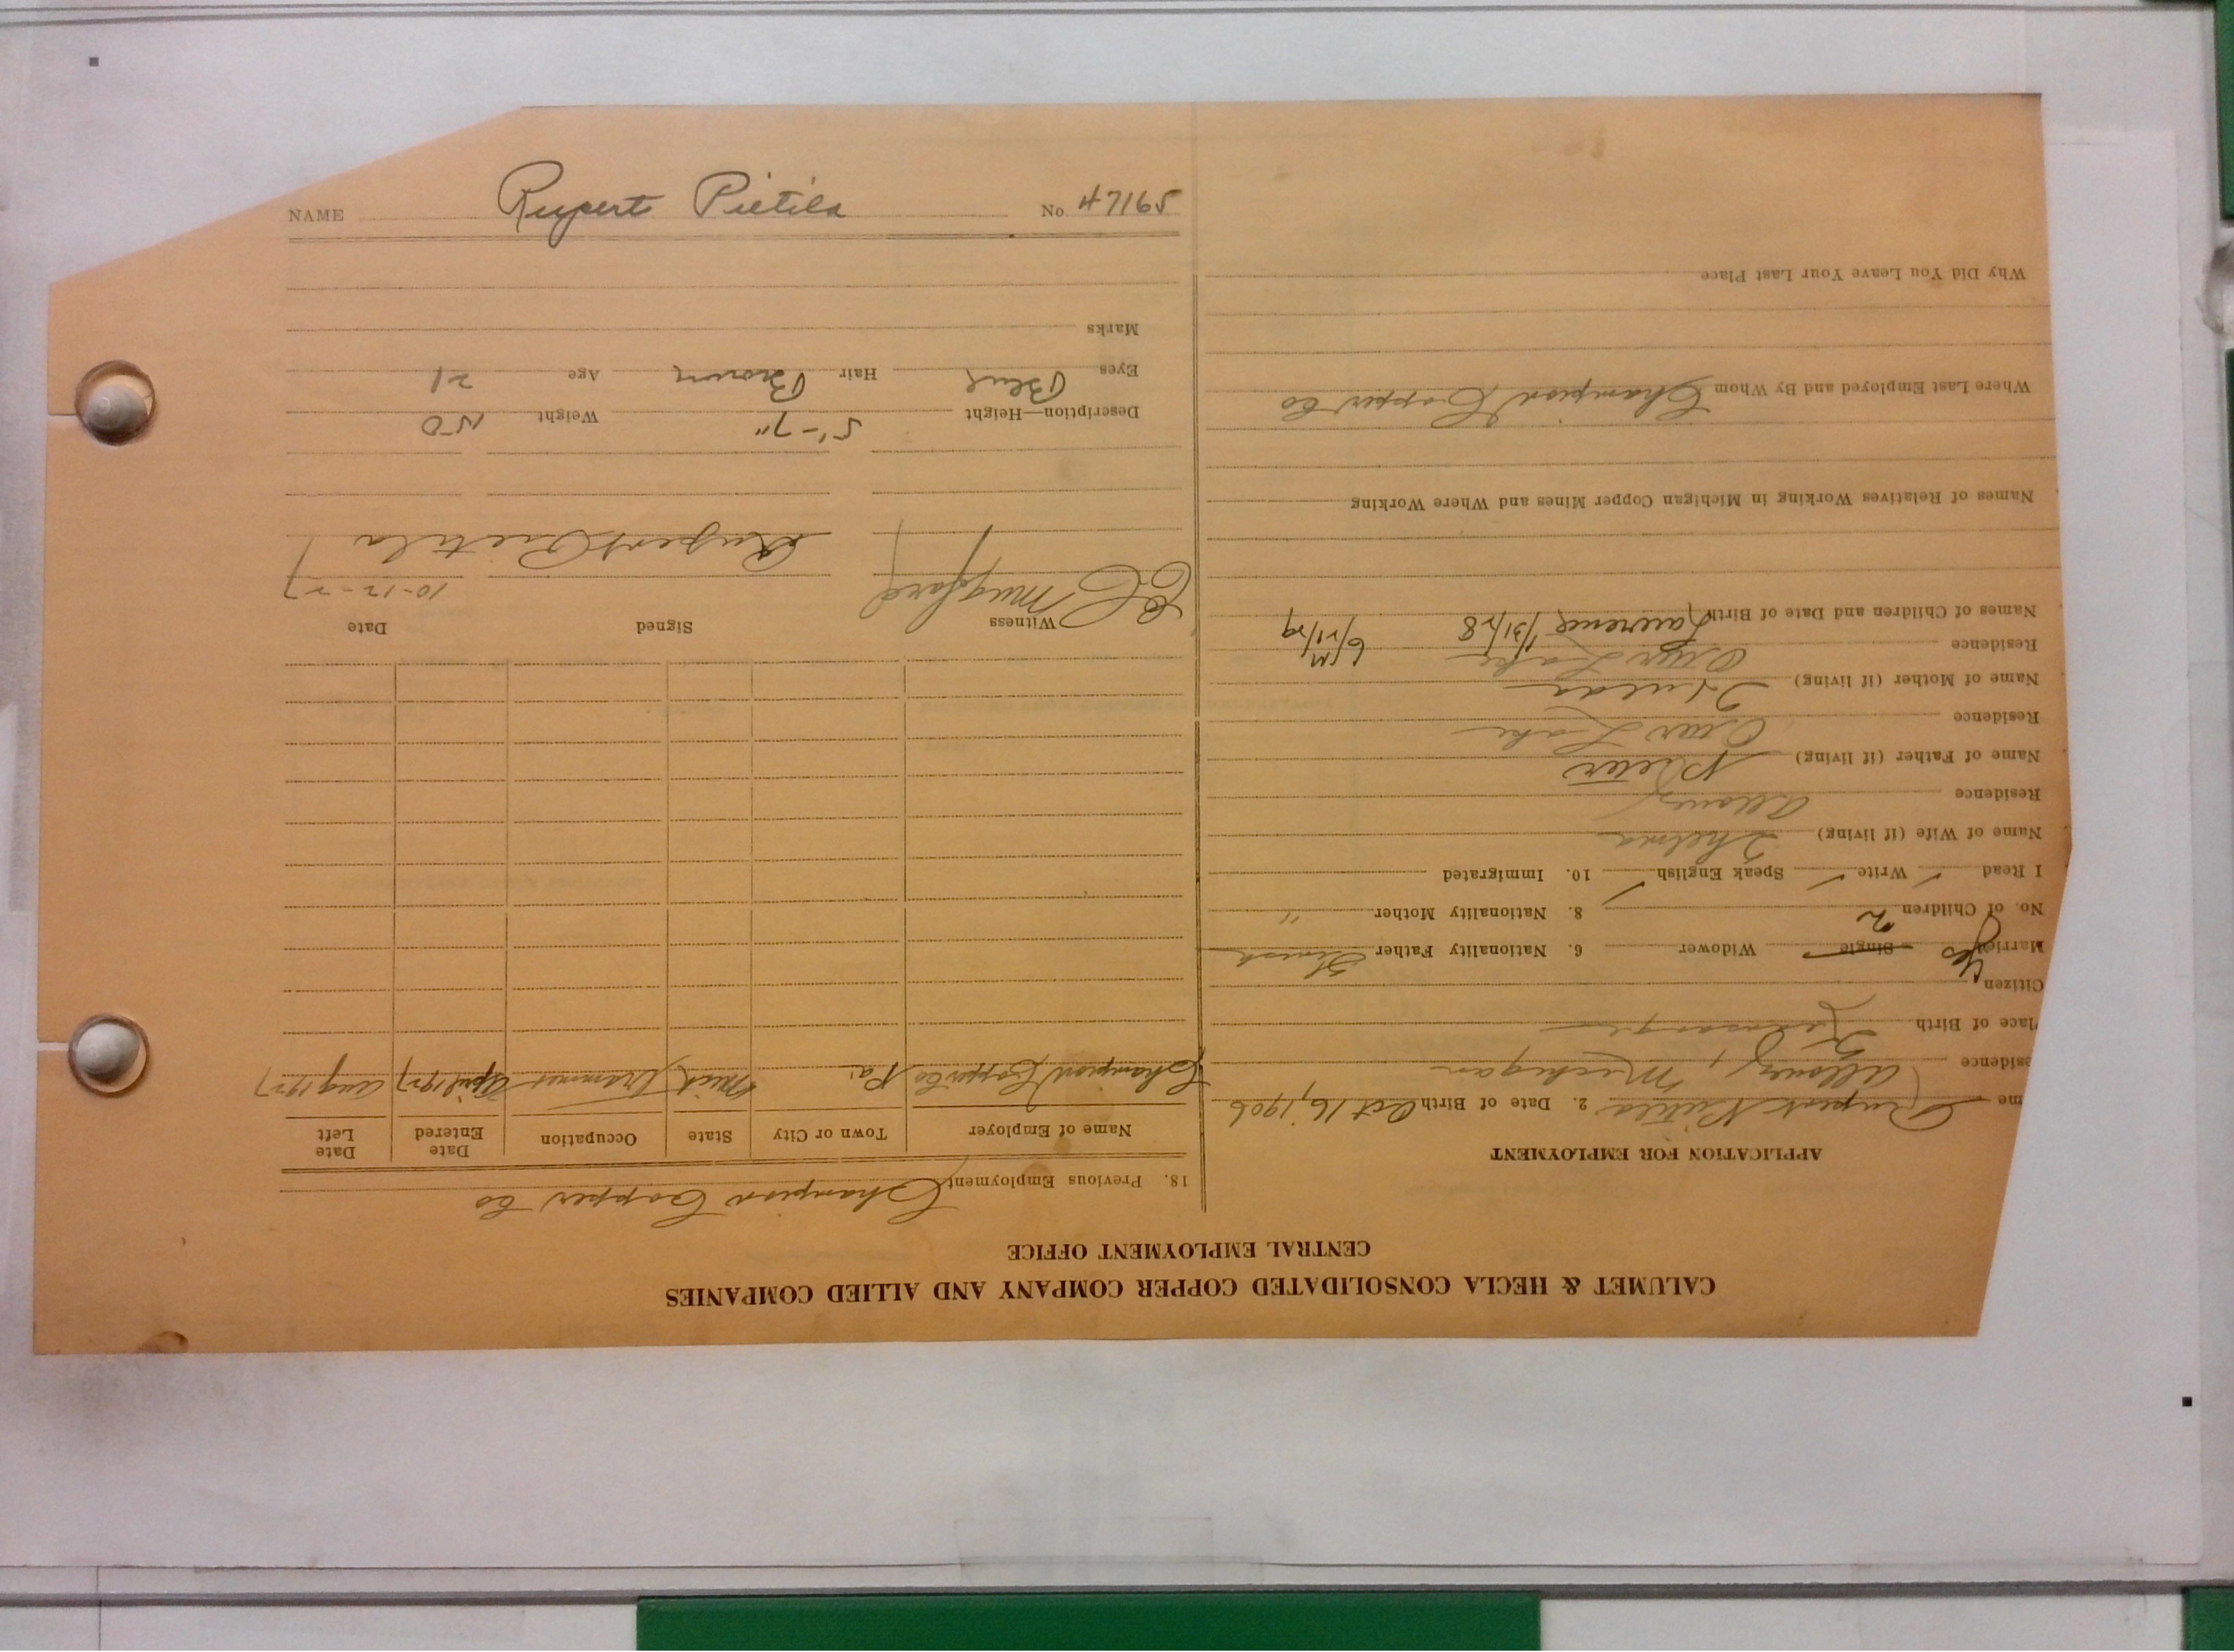 NAME Rupert Pietila No. 47165
CALUMET & HECLA CONSOLIDATED COPPER COMPANY AND ALLIED COMPANIES
CENTRAL EMPLOYMENT OFFICE
APPLICATION FOR EMPLOYMENT
me Rupert Pietila 2. Date of Birth Oct 16, 1906
esidence Allouez, Michigan
lace of Birth
Citizen Yes
Married Single Widower 6. Nationality Father Finnish
No. of Children 2 8. Nationality Mother "
I Read ✓ Write ✓ Speak English ✓ 10. Immigrated
Name of Wife (if living) Thelma
Residence Allouez
Name of Father (if living) Peter
Residence Lake
Name of Mother (if living) Hulda
Residence Lake
Names of Children and Date of Birth Lawrence 1/31/28 M 6/21/29
Names of Relatives Working in Michigan Copper Mines and Where Working
Where Last Employed and By Whom Champion Copper Co
Why Did You Leave Your Last Place
18. Previous Employment Champion Copper Co
Name of Employer Town or City State Occupation Date Entered Date Left
Champion Copper Co Mich Trammer April 1927 Aug 1927
Witness Signed Date
Rupert Pietila 10-12-27
Description—Height 5'-7" Weight 150
Eyes Blue Hair Brown Age 21
Marks